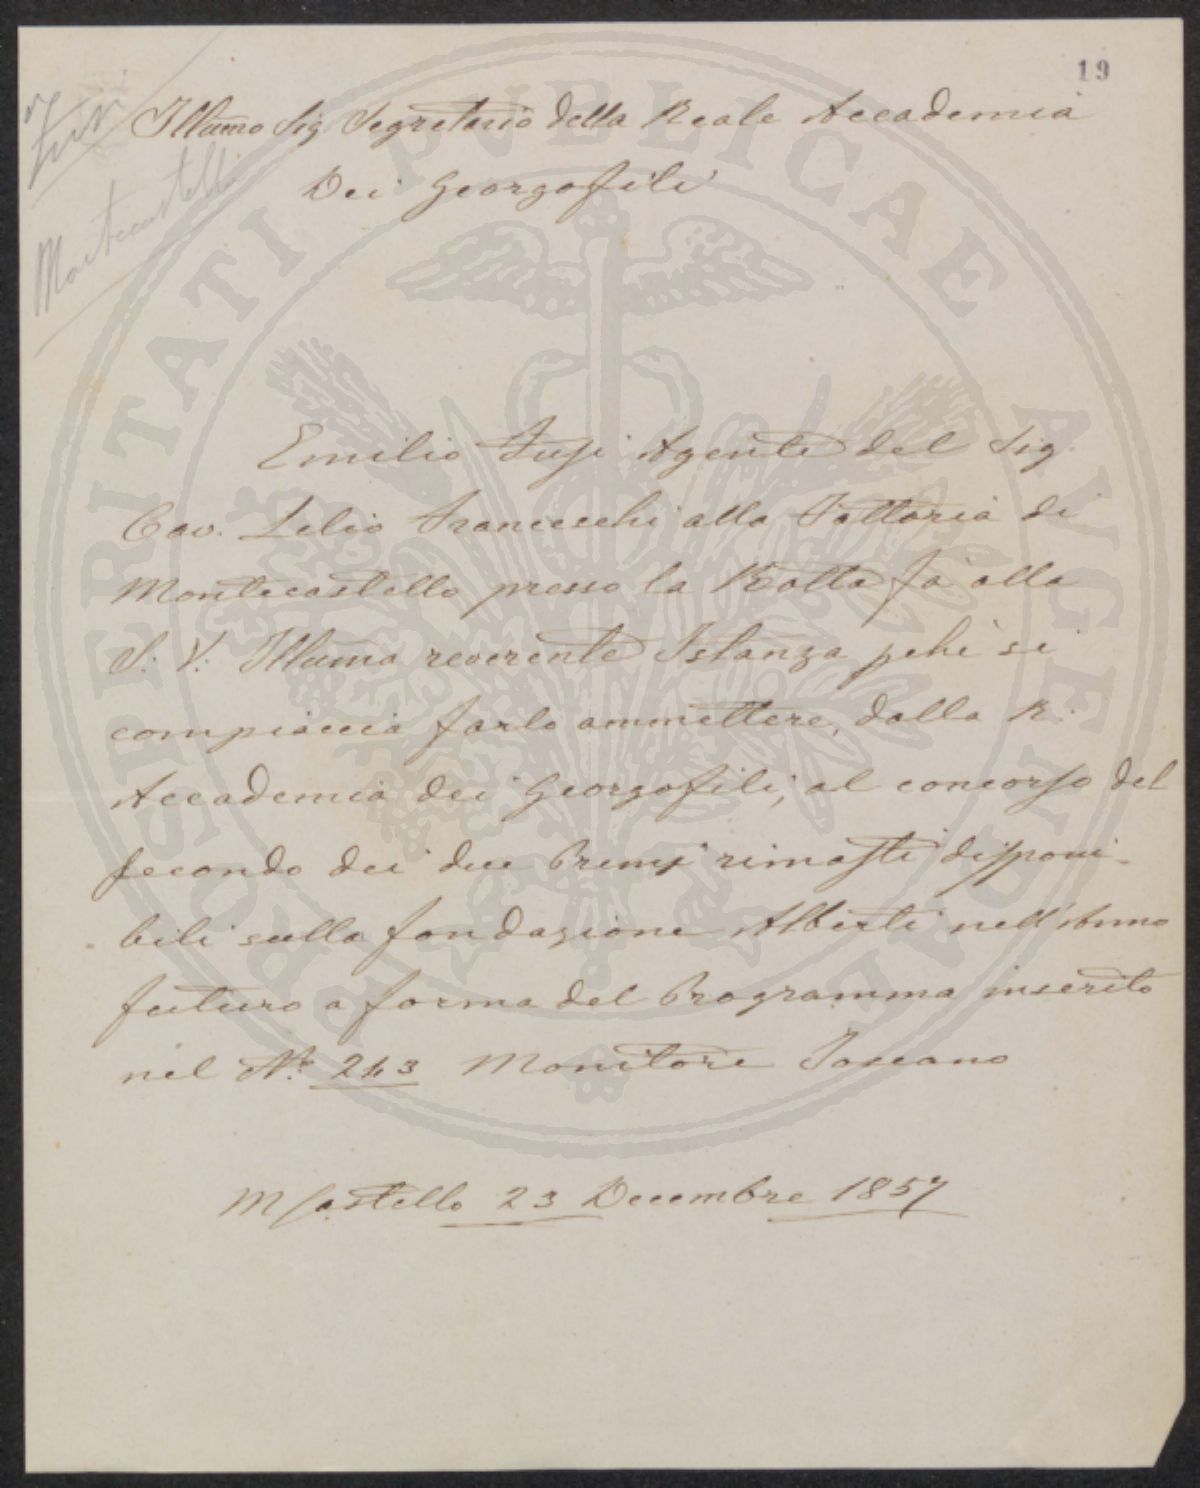 19
Illumo Sig Segretario della Reale Accademia
Dei Georgofili
Montecastello
PROSPERITATI PUBLICAE AVGENDAE
Emilio Agente del Sig
Cav. Lelio Franceschi alla Fattoria di
Montecastello presso la Rotta fa alla
S: V: Illuma reverente Istanza pchè si
compiaccia farlo ammettere, dalla R.
Accademia dei Georgofili, al concorso del
secondo dei due Premj rimasti disponi-
bili sulla fondazione Alberti nell'Anno
futuro a forma del Programma inserito
nel No. 243 Monitore Toscano
MCastello 23 Decembre 1857